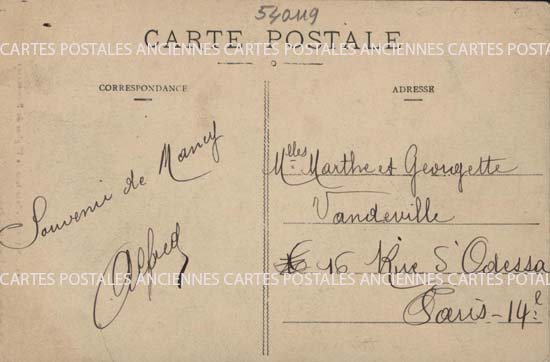 54019
CARTE POSTALE
CARTES POSTALES ANCIENNES CARTES POSTALES ANCIENNES CARTES POSTALES
CORRESPONDANCE
ADRESSE
Souvenir de Nancy
Alfred
Mlles Marthe et Georgette
Vandeville
16 Rue d'Odessa
Paris-14e
CARTES POSTALES ANCIENNES CARTES POSTALES ANCIENNES CARTES POSTALES